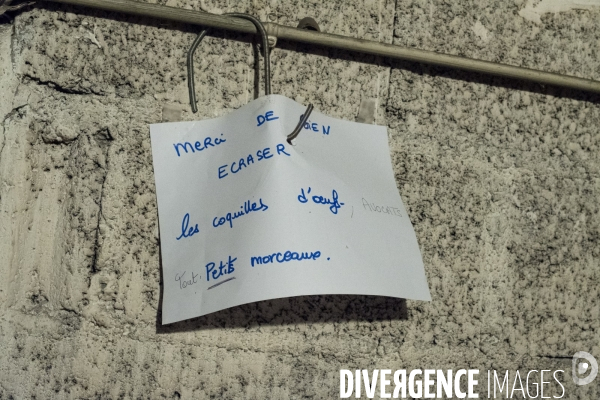 Merci DE BIEN
ECRASER
les coquilles d'œufs, Avocats
Tout Petits morceaux.
DIVERGENCE IMAGES